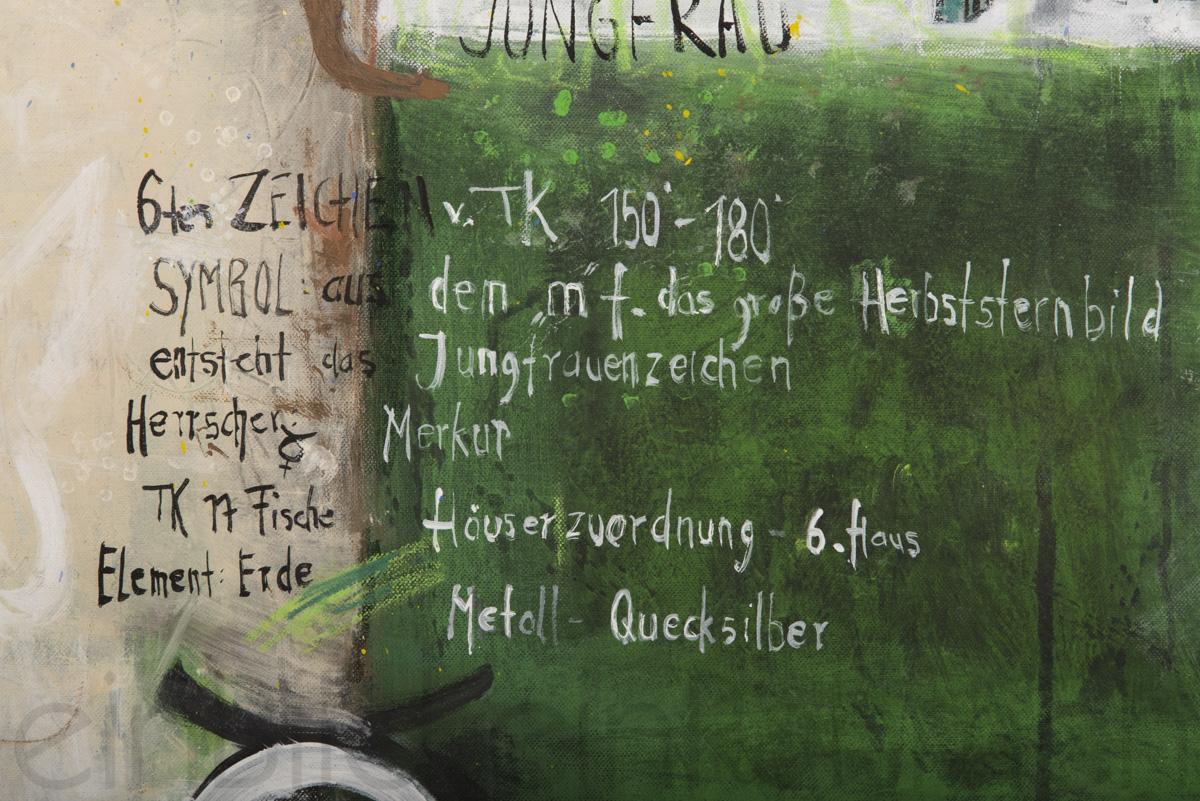 JUNGFRAU
6tes ZEICHEN v. TK 150°-180°
SYMBOL: aus dem "m" f. das große Herbststernbild
entsteht das Jungfrauenzeichen
Herrscher ☿ Merkur
TK 17 Fische
Häuserzuordnung - 6. Haus
Element: Erde
Metall - Quecksilber